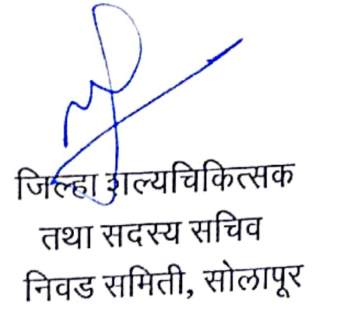 जिल्हा शल्यचिकित्सक
तथा सदस्य सचिव
निवड समिती, सोलापूर